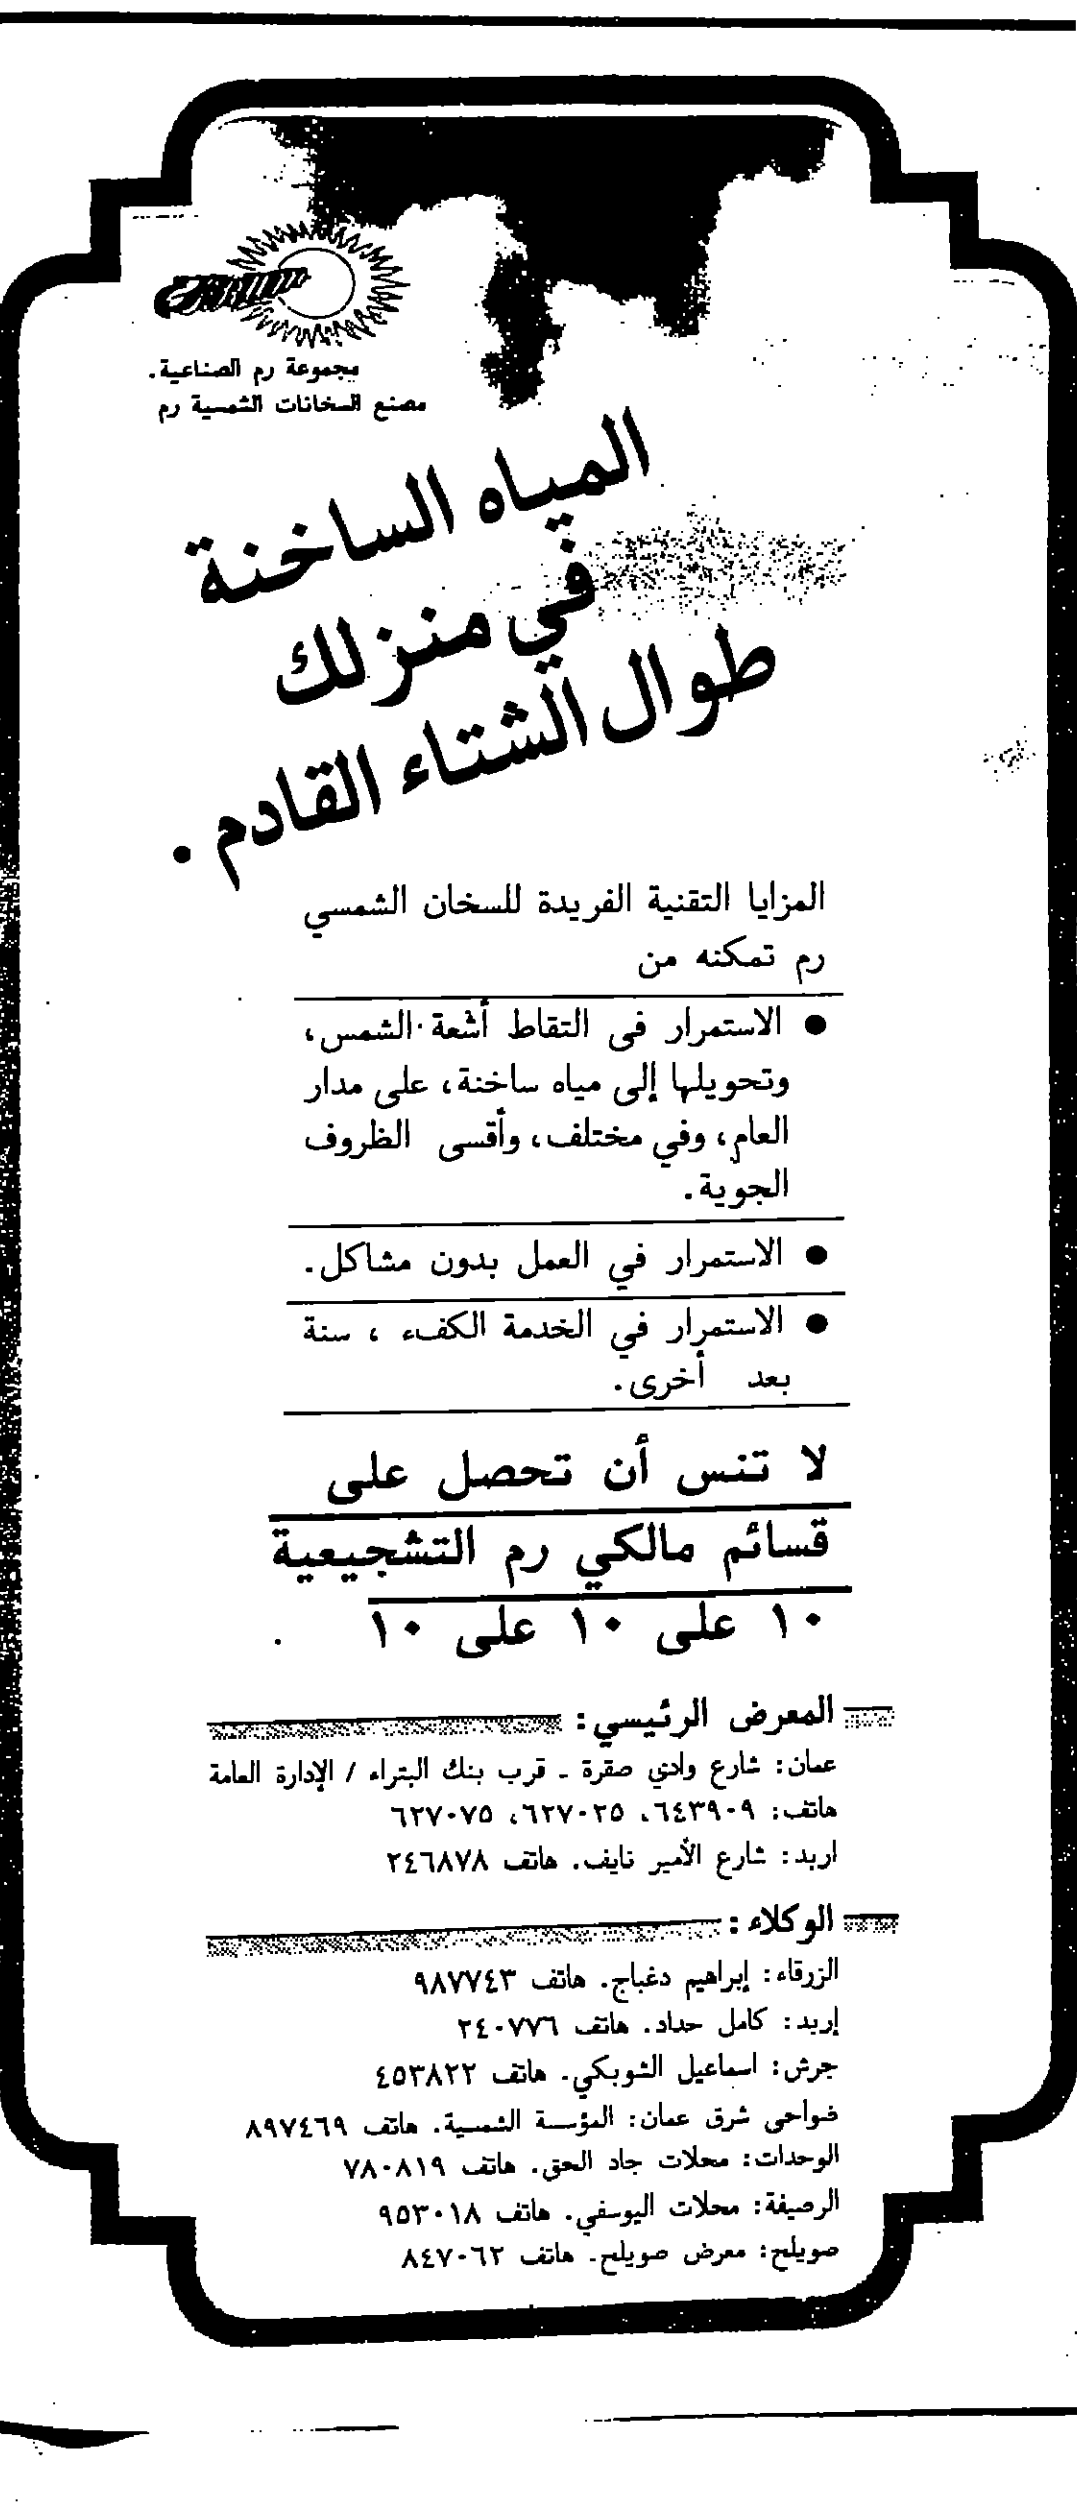 مجموعة رم الصناعية.
مصنع السخانات الشمسية رم
المياه الساخنة
في منزلك
طوال الشتاء القادم.
المزايا التقنية الفريدة للسخان الشمسي
رم تمكنه من
● الاستمرار في التقاط أشعة الشمس،
وتحويلها إلى مياه ساخنة، على مدار
العام، وفي مختلف، وأقسى الظروف
الجوية.
● الاستمرار في العمل بدون مشاكل.
● الاستمرار في الخدمة الكفء ، سنة
بعد أخرى.
لا تنس أن تحصل على
قسائم مالكي رم التشجيعية
١٠ على ١٠ على ١٠
المعرض الرئيسي:
عمان: شارع وادي صقرة ـ قرب بنك البتراء / الإدارة العامة
هاتف: ٦٤٣٩٠٩، ٦٢٧٠٢٥، ٦٢٧٠٧٥
اربد: شارع الأمير نايف. هاتف ٢٤٦٨٧٨
الوكلاء:
الزرقاء: إبراهيم دغباج. هاتف ٩٨٧٧٤٣
إربد: كامل حداد. هاتف ٢٤٠٧٧٦
جرش: اسماعيل الشوبكي. هاتف ٤٥٣٨٢٢
ضواحي شرق عمان: المؤسسة الشمسية. هاتف ٨٩٧٤٦٩
الوحدات: محلات جاد الحق. هاتف ٧٨٠٨١٩
الرصيفة: محلات اليوسفي. هاتف ٩٥٣٠١٨
صويلح: معرض صويلح. هاتف ٨٤٧٠٦٢